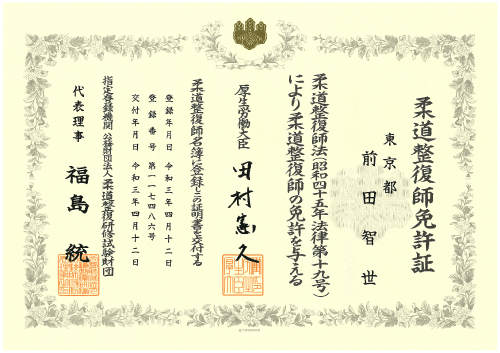 柔道整復師免許証
東京都
前田智世
柔道整復師法（昭和四十五年法律第十九号）
により柔道整復師の免許を与える
厚生労働大臣 田村憲久
柔道整復師名簿に登録しこの証明書を交付する
登録年月日 令和三年四月十二日
登録番号 第一一七四八六号
交付年月日 令和三年四月十二日
指定登録機関 公益財団法人 柔道整復研修試験財団
代表理事 福島統